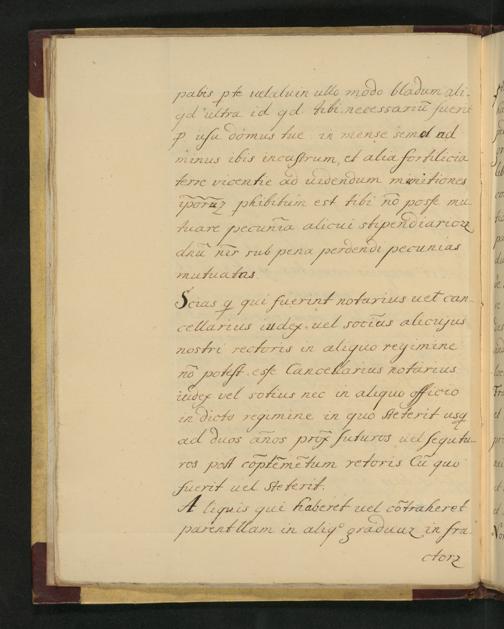 pabis p̱ te vel alium ullo modo bladum ali-
qd ultra id qd tibi necessariũ fuerit
p̱ usu domus tue in mense semel ad
minus ibis in castrum, et alia fortilicia
terre vicentie ad uidendum munitiones
ip̃oruz phibitum est tibi nõ posse mu
tuare pecunia alicui stipendiarioz
dnũ nr̃ sub pena perdendi pecunias
mutuatas
Scias q qui fuerint notarius uel can-
cellarius iudex uel socius alicujus
nostri rectoris in aliquo regimine
nõ potest esse Cancellarius notarius
iudex vel sotius nec in aliquo officio
in dicto regimine in quo steterit usq
ad duos anos prõx futuros uel sequtu-
ros post cõptemẽtum retoris Cũ quo
fuerit uel steterit.
Aliquis qui haberet uel cõtraheret
parentllam in aliqº graduuz in fra-
ctorz